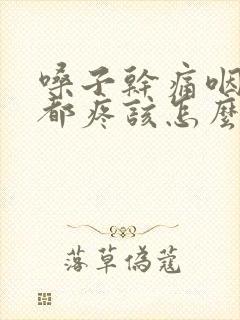 嗓子幹痛咽
都疼該怎麼
落草偽蔻